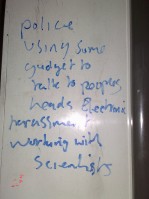 police
using some
gudget to
talk to peoples
heads Electronic
harassment
working with
Scientists